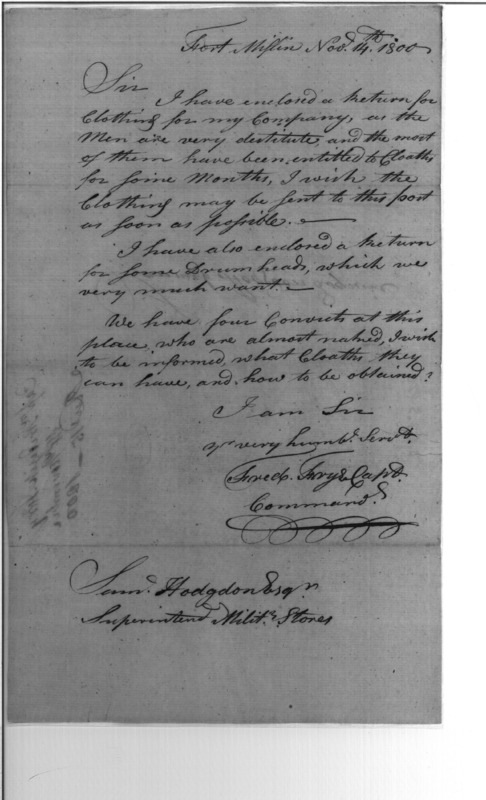 Fort Miflin Novr. 14th. 1800
Sir
I have enclosed a Return for
Clothing for my Company, as the
Men are very destitute, and the most
of them have been entitled to Cloaths
for some Months, I wish the
Clothing may be sent to this post
as soon as possible.
I have also enclosed a Return
for some Drum heads, which we
very much want.
We have four Convicts at this
place, who are almost naked, I wish
to be informed, what Cloaths they
can have, and how to be obtained?
I am Sir
yr very humbe. Servt.
Fred. Frye Capt.
Commandg
Saml. Hodgdon Esqr
Superintend Mility. Stores
1800